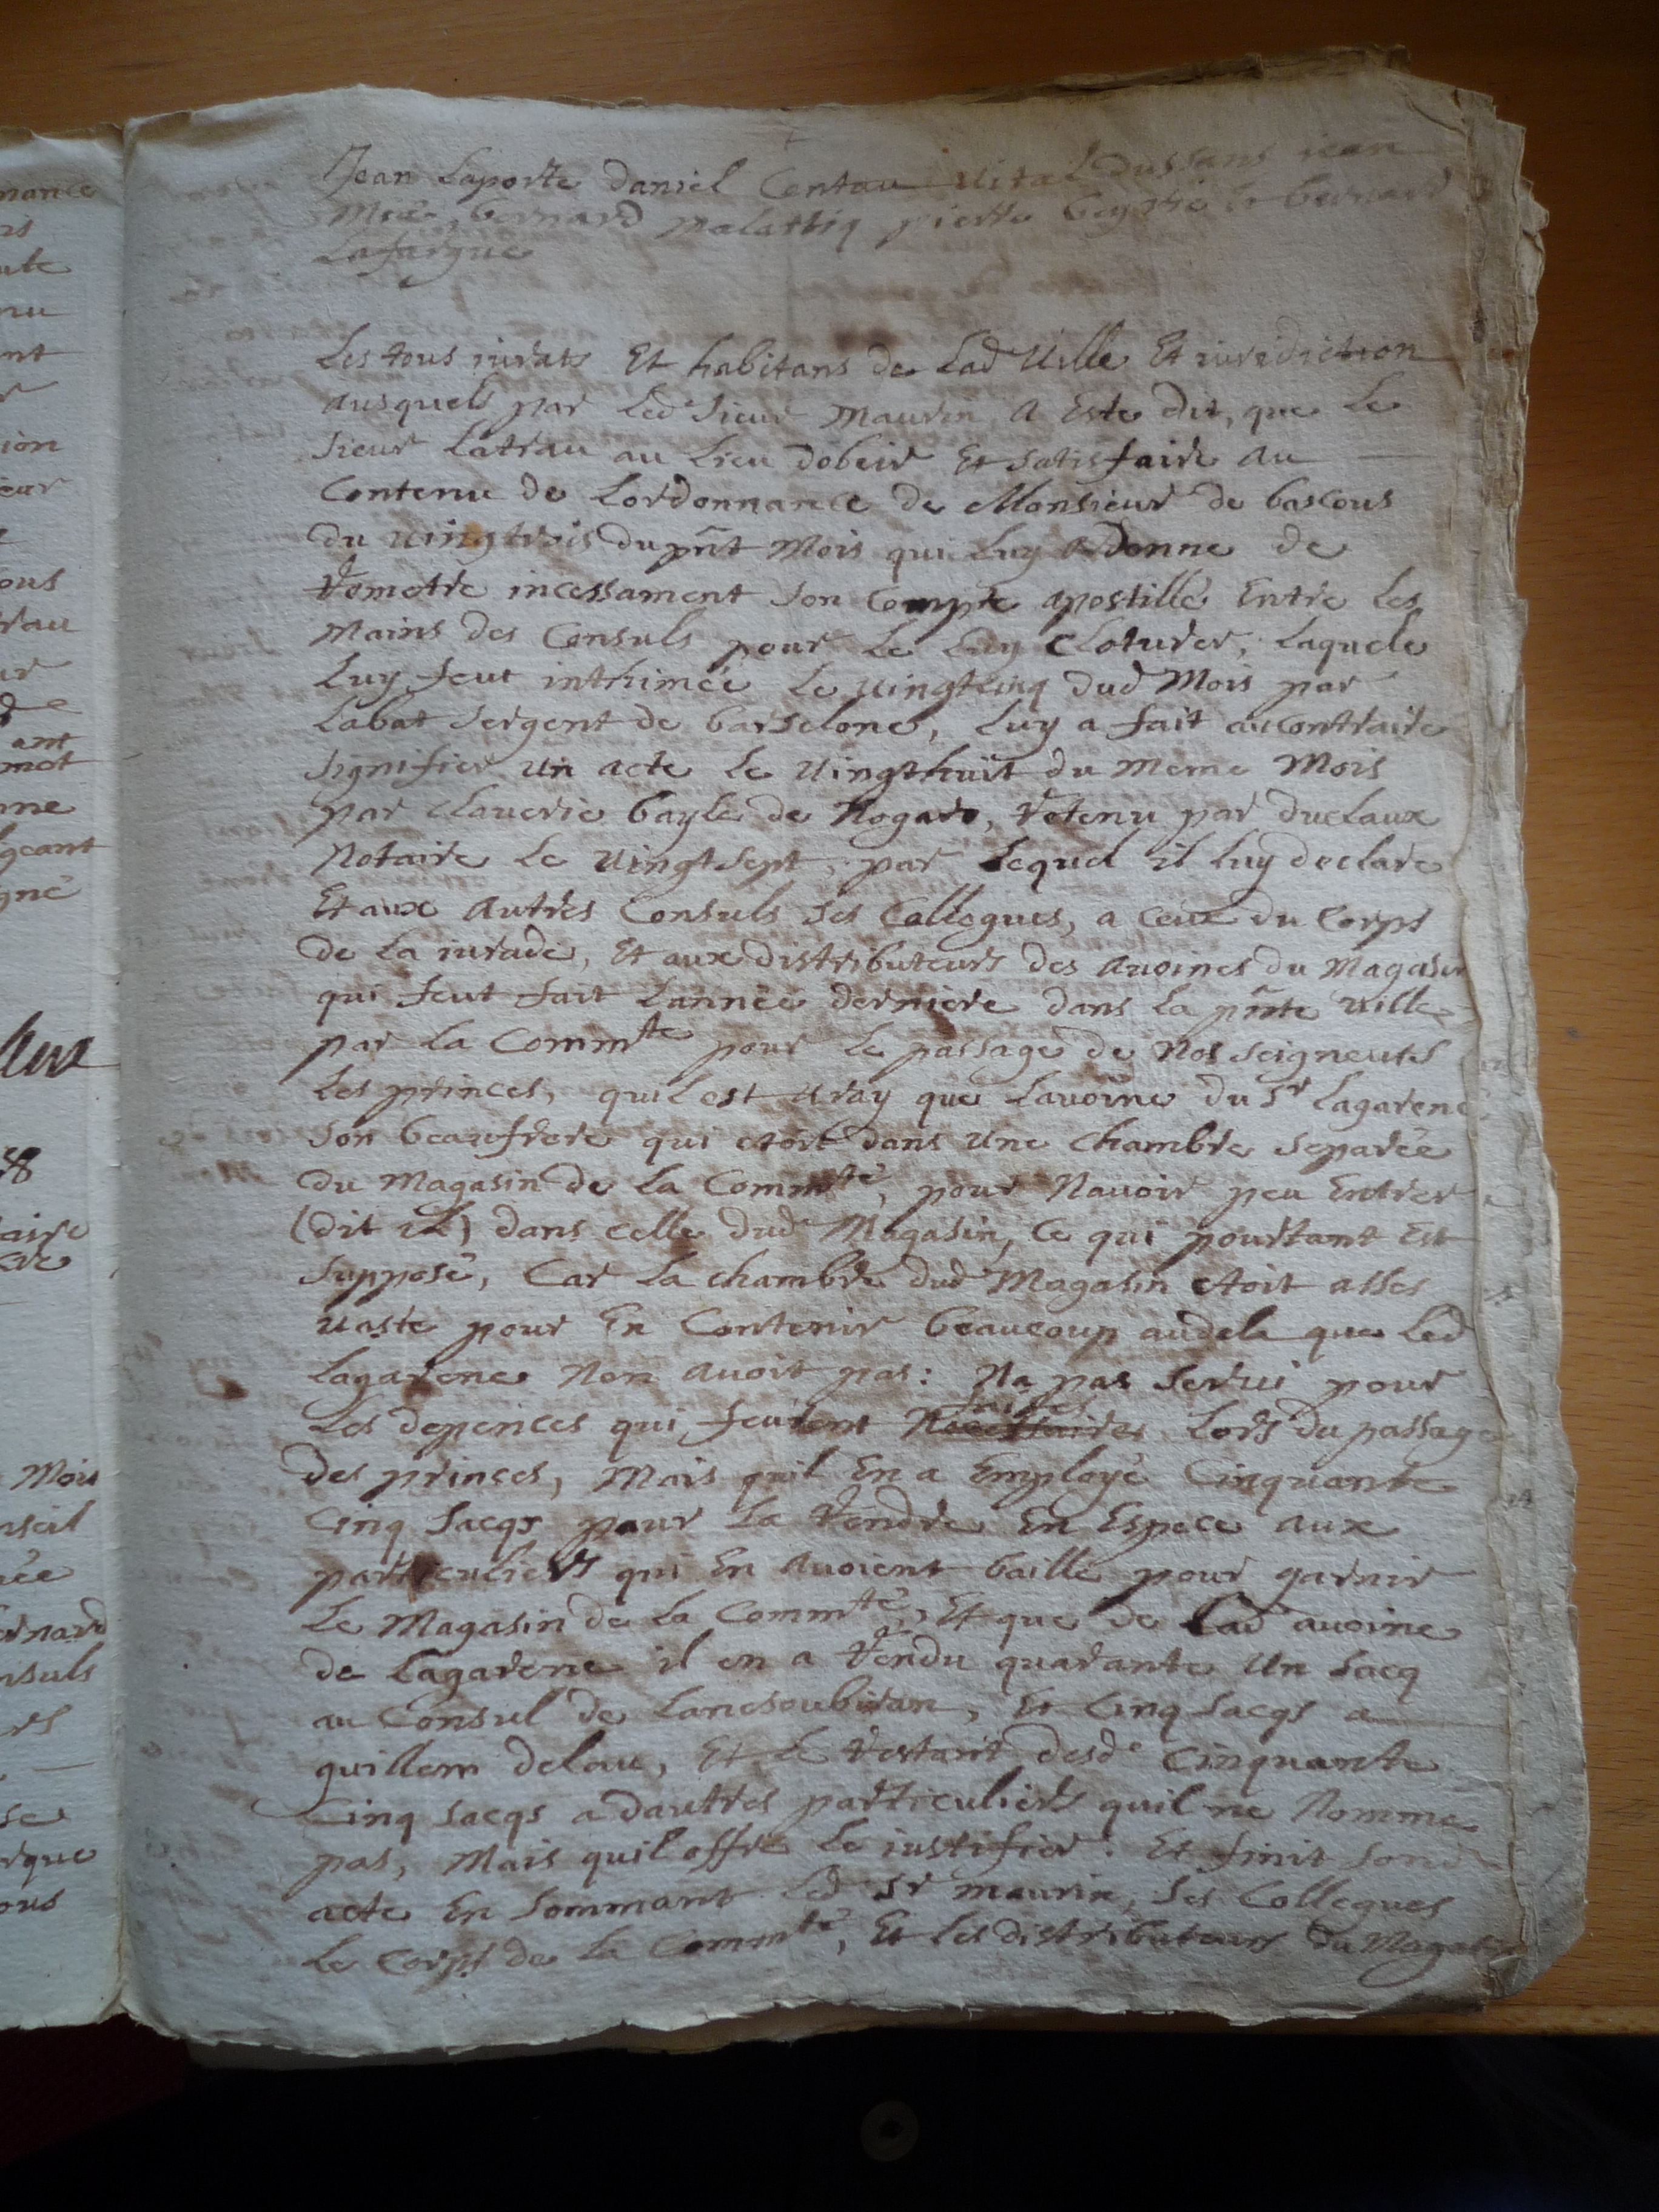 Jean Laporte daniel Centau Vital Dussans jean
bernard palathiq pierre
Lafargue
Les tous jurats Et habitans de Lad Ville Et juridiction
ausquels par Led Sieur Maurin, A Este dit, que Le
Sieur Latrau au Lieu dobeir Et satisfaire au
Contenu de Lordonnance de Monsieur de bascous
du vingtrois du pñt Mois qui Luy ordonne de
remetre incessament son Compte apostillé Entre Les
Mains des Consuls pour Le Luy Cloturer, Laquele
Luy feut inthimée Le vingtcinq dud Mois par
Labat sergent de barselone, Luy a fait aucontraire
signifier un acte Le vingthuit du meme Mois
par claverie bayle de Nogaro, retenu par duclaux
Notaire Le vingtsept, par Lequel il luy declare
Et aux autres Consuls ses Collegues, a Ceux du Corps
de La jurade, Et aux distributeurs des avoines du Magasin
qui feut fait Lannée derniere dans La pñte ville
par La Commte pour Le passage de Nos seigneurs
Les princes, quil est vray que Lavoine du Sr Lagarene
son beaufrere qui etoit dans une chambre separée
du Magasin de La Commté, pour Navoir peu Entrer
(dit il) dans celle dud Magasin, Ce qui pourtant Est
supposé, Car La chambre dud Magasin etoit asses
vaste pour En Contenir beaucoup audela que Led
Lagarene Non avoit pas: Na pas servi pour
faites
Les depences qui feurent Necessaires Lors du passage
des princes, Mais quil En a Employé Cinquante
Cinq sacqs pour La rendre En Espece aux
particuliers qui En avoient baillé pour garnir
Le Magasin de La Commté, Et que de Lad avoine
de Lagarene il en a vendu quarante un sacq
au Consul de Lanesoubiran, Et Cinq sacqs a
guillem delau, Et Le restant desd Cinquante
Cinq sacqs a dautres particuliers quil ne Nomme
pas, Mais quil offre Le justifier. Et finit son
acte En sommant Led Sr maurin, ses Collegues
Le Corps de La Commté, Et Les distributeurs du Magasin